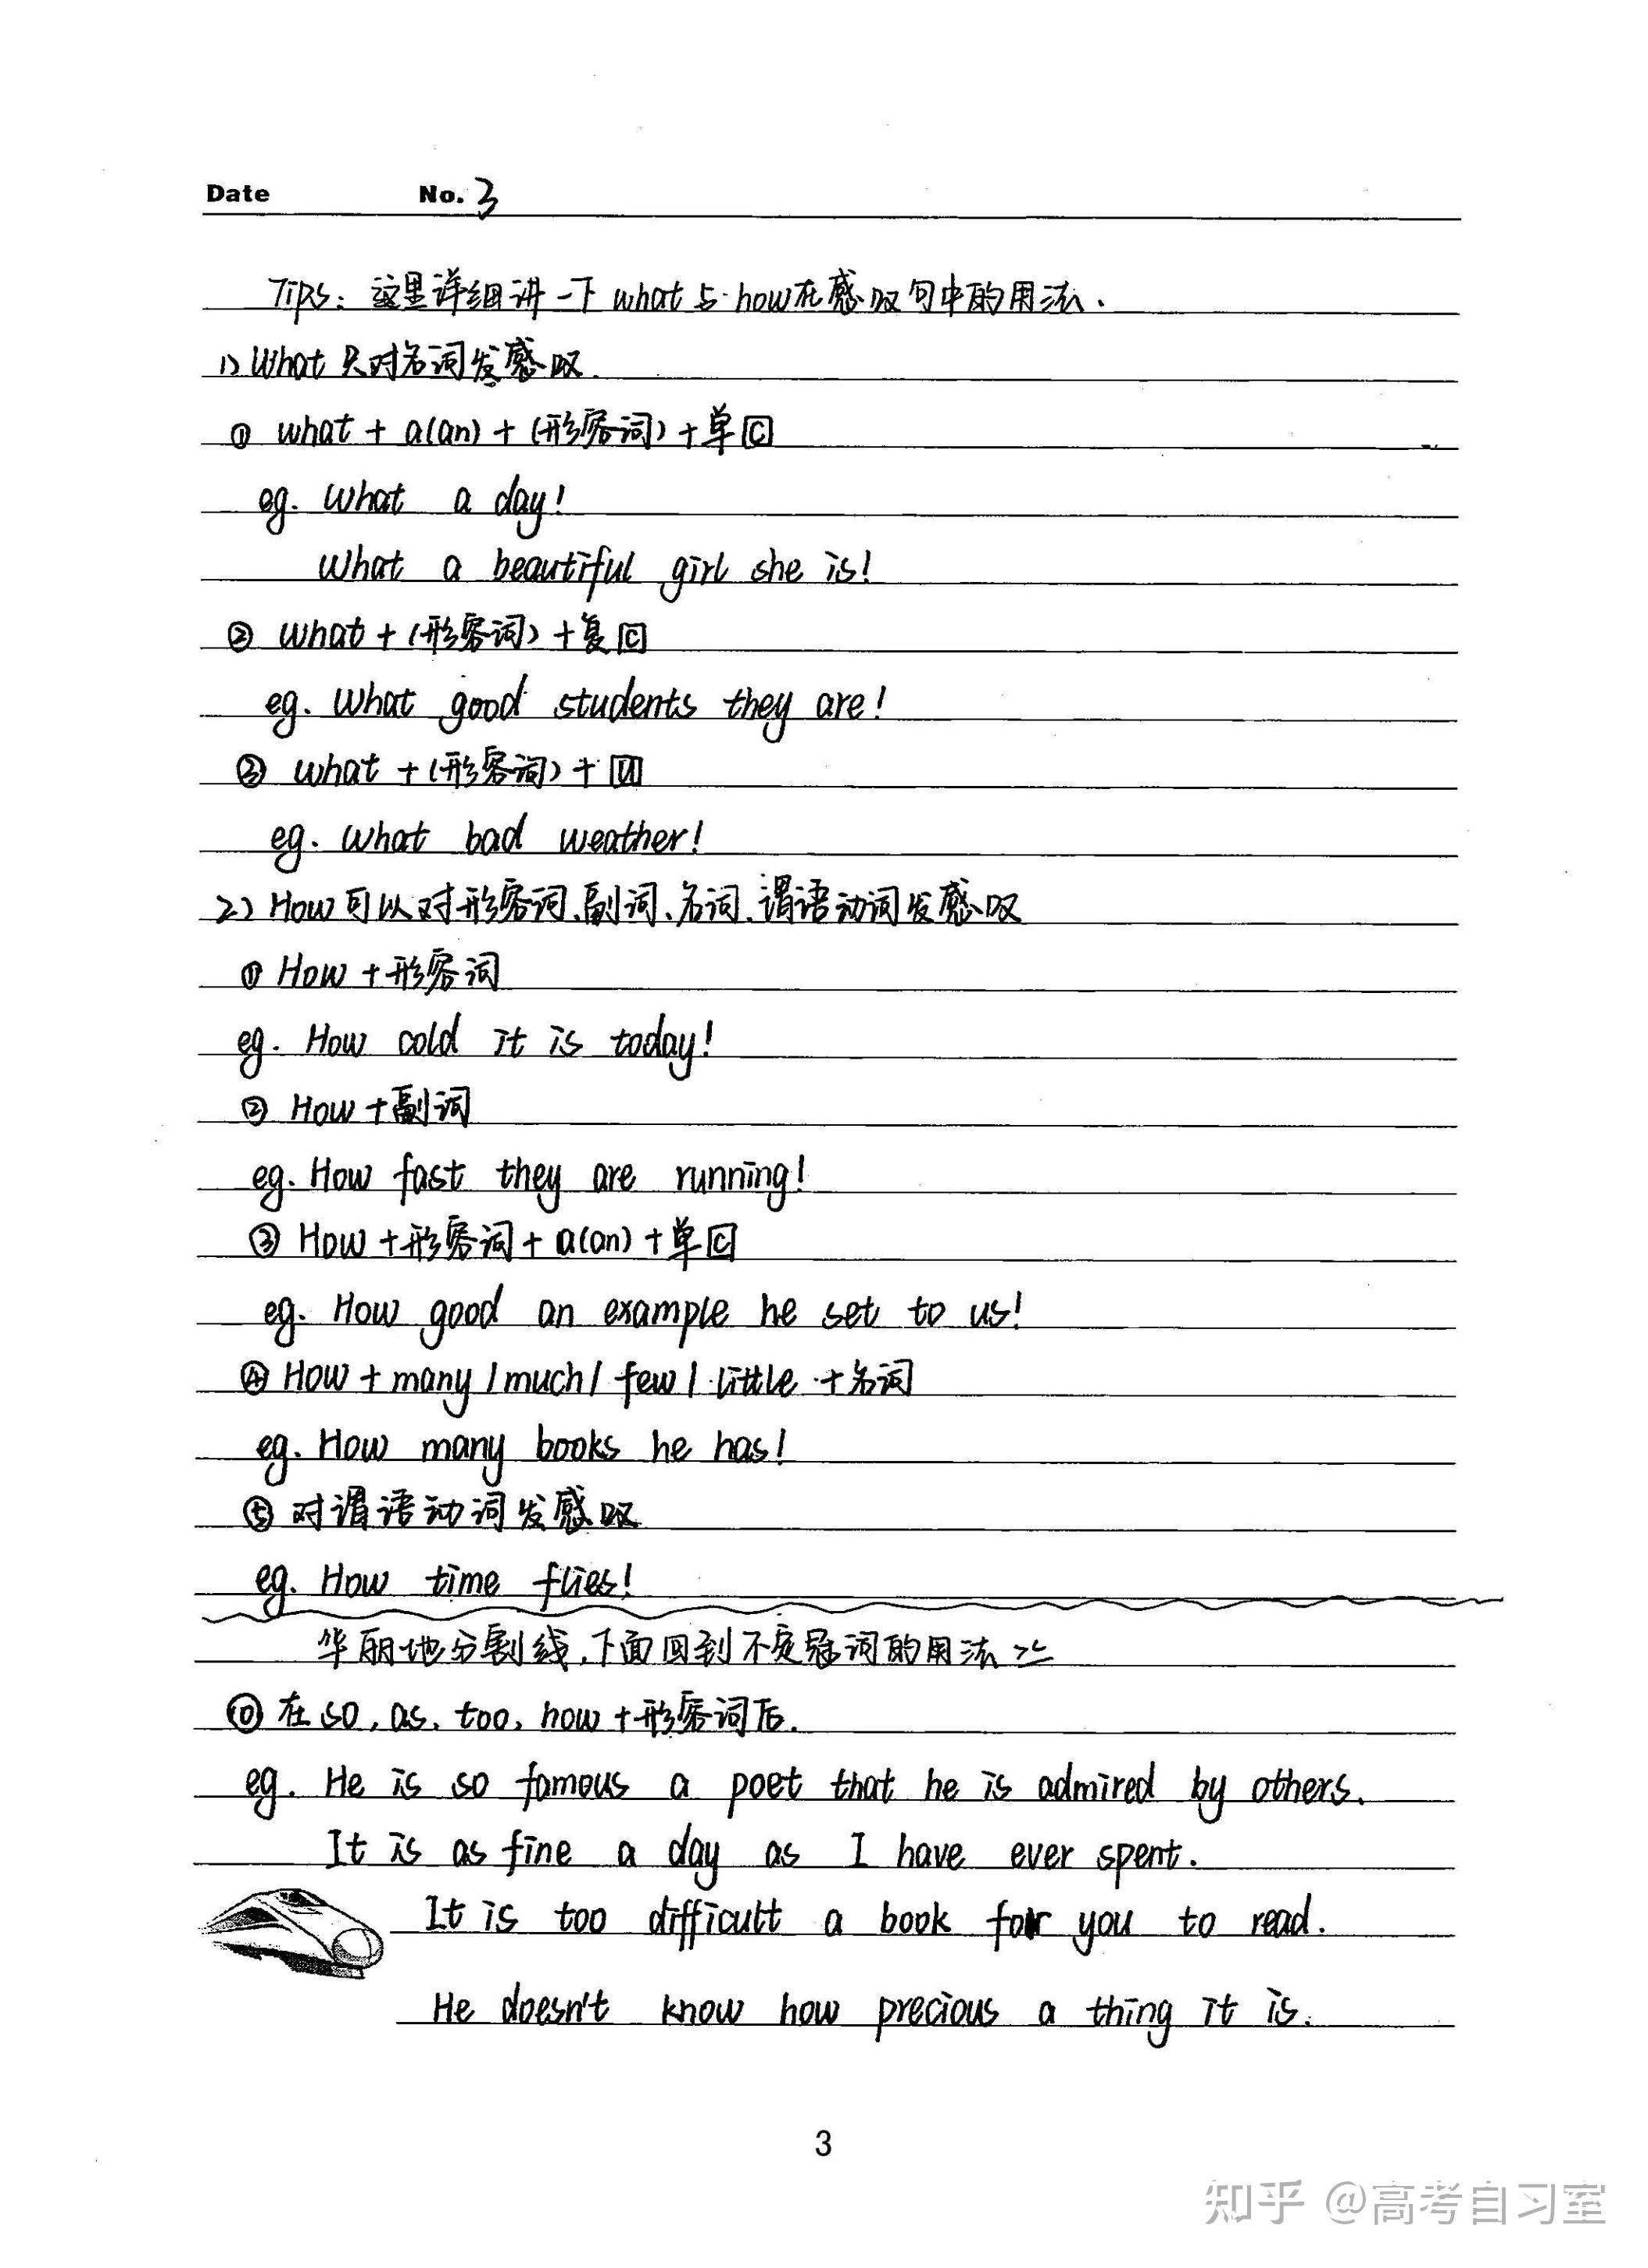 Date No. 3
Tips: 这里详细讲一下 what 与 how在感叹句中的用法.
1) What 只对名词发感叹.
① what + a(an) + (形容词) + 单[C]
eg. What a day!
What a beautiful girl she is!
② what + (形容词) + 复[C]
eg. What good students they are!
③ what + (形容词) + [U]
eg. What bad weather!
2) How可以对形容词、副词、名词、谓语动词发感叹
① How + 形容词
eg. How cold it is today!
② How + 副词
eg. How fast they are running!
③ How + 形容词 + a(an) + 单[C]
eg. How good an example he set to us!
④ How + many / much / few / little + 名词
eg. How many books he has!
⑤ 对谓语动词发感叹
eg. How time flies!
华丽地分割线,下面回到不定冠词的用法
⑩ 在 so, as, too, how + 形容词后.
eg. He is so famous a poet that he is admired by others.
It is as fine a day as I have ever spent.
It is too difficult a book for you to read.
He doesn't know how precious a thing it is.
3
知乎 @高考自习室